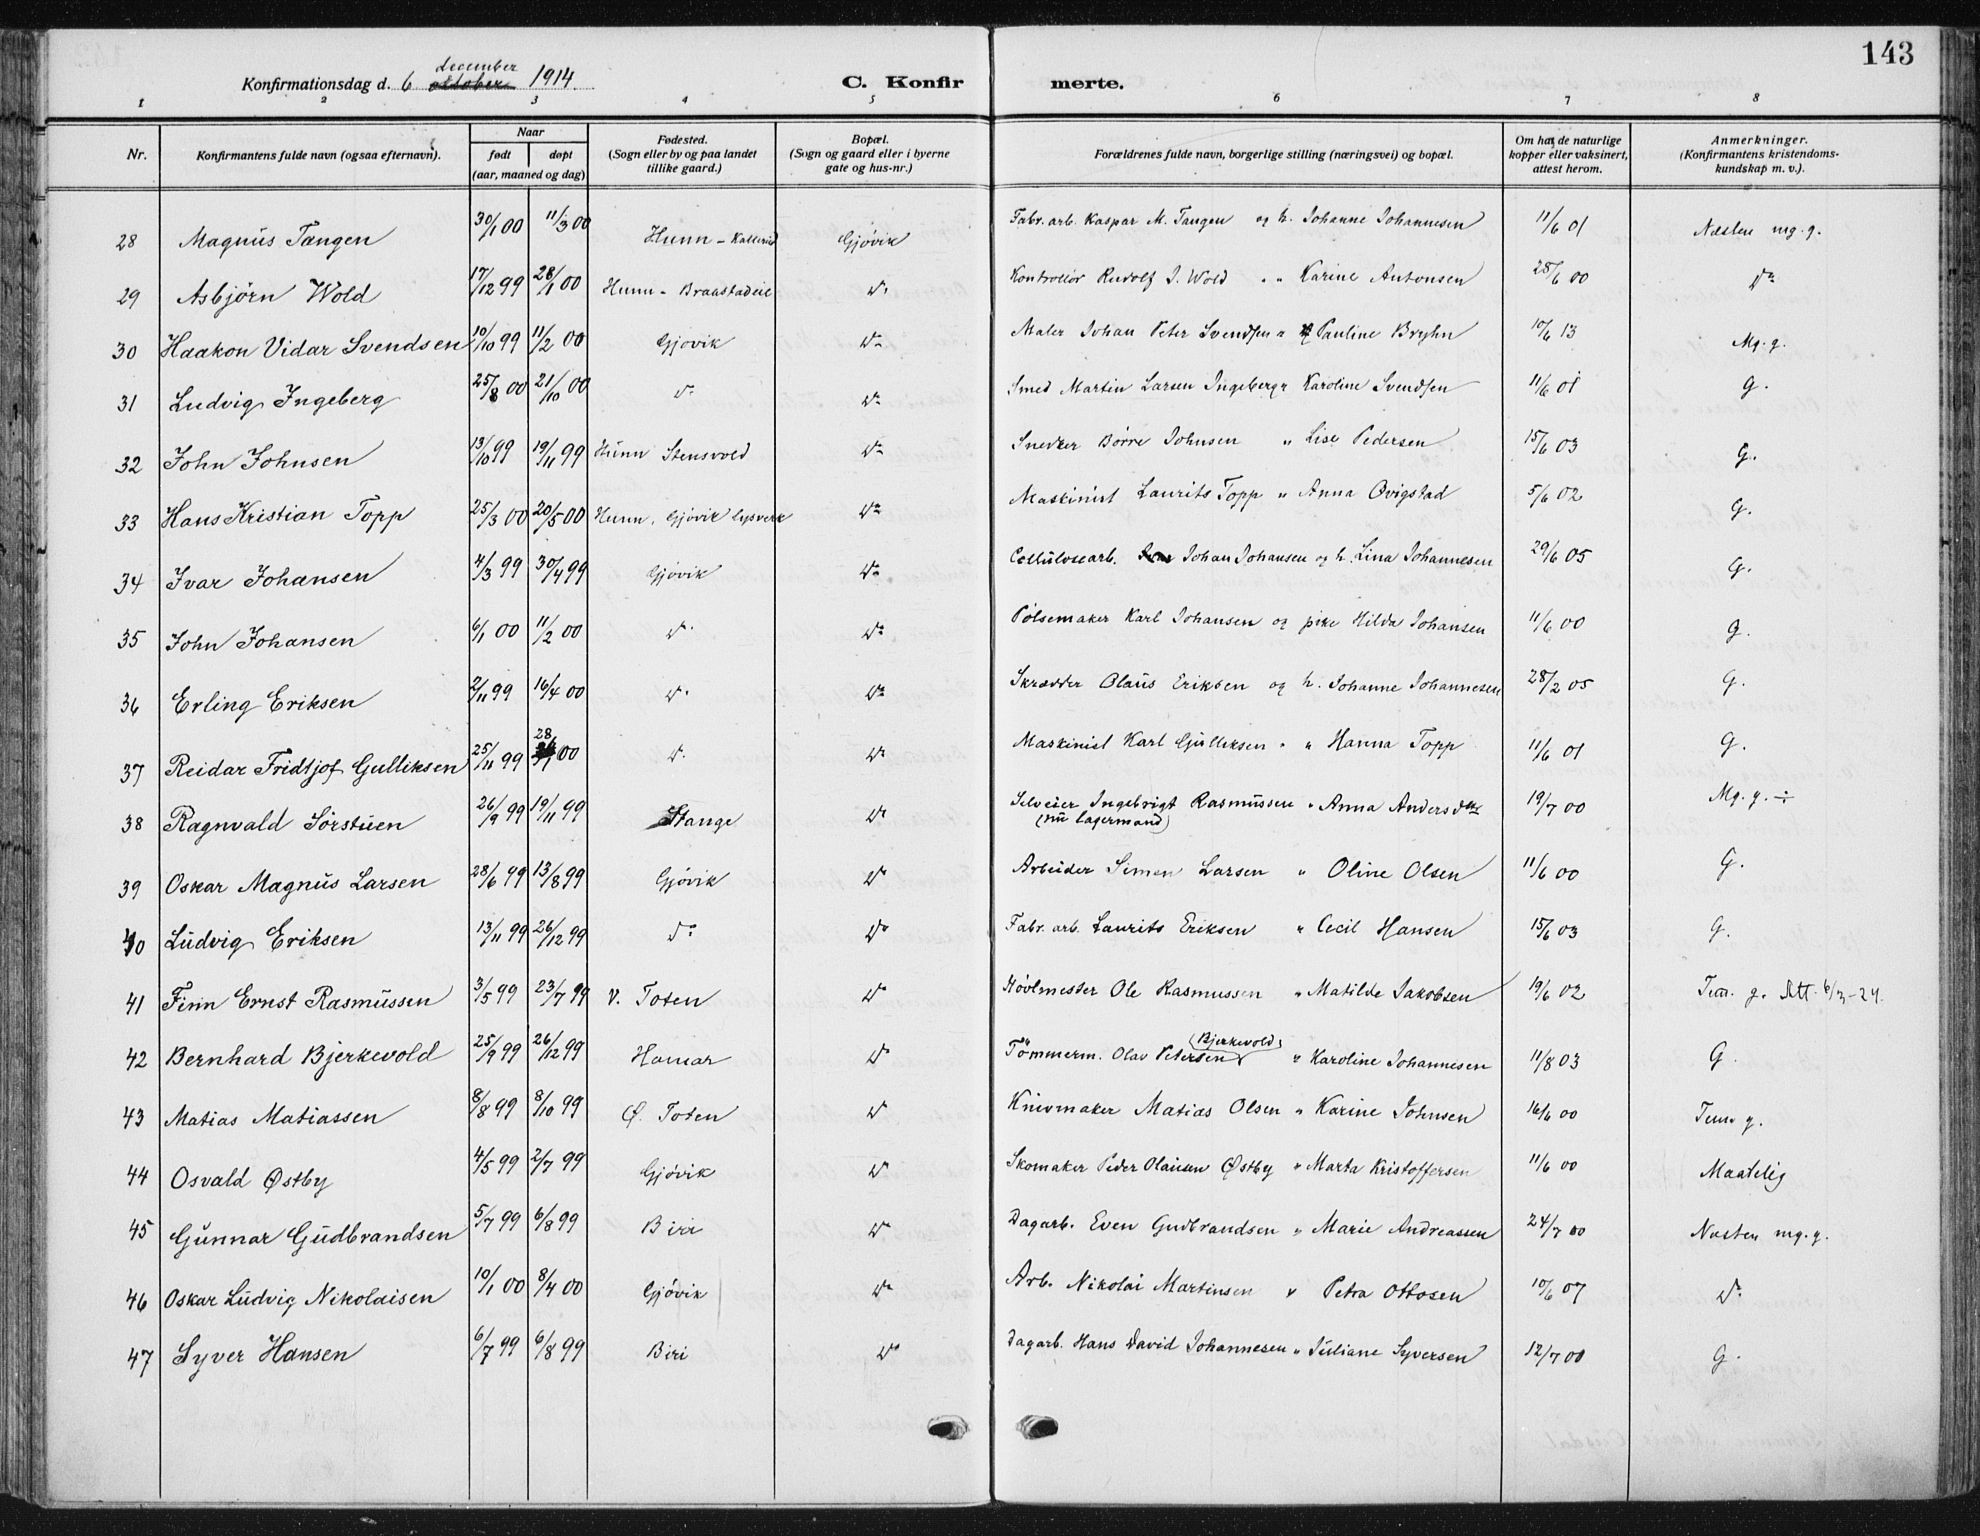 143
Konfirmationsdag d. 6 december oktober 1914. C. Konfirmerte.
1 2 3 4 5 6 7 8
Nr. Konfirmantens fulde navn (ogsaa efternavn). Naar født døpt (aar, maaned og dag) Fødested. (Sogn eller by og paa landet tillike gaard.) Bopæl. (Sogn og gaard eller i byerne gate og hus-nr.) Forældrenes fulde navn, borgerlige stilling (næringsvei) og bopæl. Om hat de naturlige kopper eller vaksinert, attest herom. Anmerkninger. (Konfirmantens kristendoms-kundskap m. v.).
28 Magnus Tangen 30/1 00 11/3 00 Hunn - Kallerud Gjøvik Fabr. arb. Kaspar M. Tangen og h. Johanne Johannesen 11/6 01 Næsten mg. g.
29 Asbjörn Wold 17/12 99 28/1 00 Hunn - Braastadeie do Kontrollör Rudolf J. Wold " " Karine Antonsen 25/6 00 do
30 Haakon Vidar Svendsen 10/10 99 11/2 00 Gjøvik do Maler Johan Peter Svendsen " Pauline Bryhn 10/6 13 Mg. g.
31 Ludvig Ingeberg 25/8 00 21/10 00 do do Smed Martin Larsen Ingeberg " Karoline Svendsen 11/6 01 G.
32 John Johnsen 13/10 99 19/11 99 Hunn Stensvold do Snedker Börre Johnsen " Lise Pedersen 15/6 03 G.
33 Hans Kristian Topp 25/3 00 20/5 00 Hunn, Gjövik Lysverk do Maskinist Laurits Topp " Anna Qvigstad 5/6 02 G.
34 Ivar Johansen 4/3 99 30/4 99 Gjövik do Cellulosearb. Ivar Johan Johansen og h. Lina Johannesen 29/6 05 G.
35 John Johansen 6/1 00 11/2 00 do do Pölsemaker Karl Johansen og pike Hilda Johansen 11/6 00 G.
36 Erling Eriksen 2/11 99 16/4 00 do do Skrædder Olaus Eriksen og h. Johanne Johannesen 28/2 05 G.
37 Reidar Fridtjof Gulliksen 25/11 99 28/1 00 do do Maskinist Karl Gulliksen " " Hanna Topp 11/6 01 G.
38 Ragnvald Sörstuen 26/9 99 19/11 99 Stange do Selveier Ingebrigt Rasmussen " Anna Andersdtr 19/7 00 Mg. g. ÷
(nu lagermand)
39 Oskar Magnus Larsen 28/6 99 13/8 99 Gjövik do Arbeider Simen Larsen " Oline Olsen 11/6 00 G.
40 Ludvig Eriksen 13/11 99 26/12 99 do do Fabr. arb. Laurits Eriksen " Cecil Hansen 15/6 03 G.
41 Finn Ernst Rasmussen 3/5 99 23/7 99 V. Toten do Hövlmester Ole Rasmussen " Matilde Jakobsen 19/6 02 Tem. g. Att. 6/3-24.
42 Bernhard Bjerkevold 25/9 99 26/12 99 Hamar do Tömmerm. Olav Petersen (Bjerkevold) " Karoline Johannesen 11/8 03 G.
43 Matias Matiassen 8/8 99 8/10 99 Ø. Toten do Knivmaker Matias Olsen " Karine Johnsen 16/6 00 Tem. g.
44 Osvald Østby 4/5 99 2/7 99 Gjövik do Skomaker Peder Olausen Østby " Marta Kristoffersen 11/6 00 Maatelig
45 Gunnar Gudbrandsen 5/7 99 6/8 99 Biri do Dagarb. Even Gudbrandsen " Marie Andreassen 24/7 00 Næsten mg. g.
46 Oskar Ludvig Nikolaisen 10/1 00 8/4 00 Gjövik do Arb. Nikolai Martinsen " Petra Ottosen 10/6 07 do
47 Syver Hansen 6/7 99 6/8 99 Biri do Dagarb. Hans David Johannesen " Juliane Syversen 12/7 00 G.